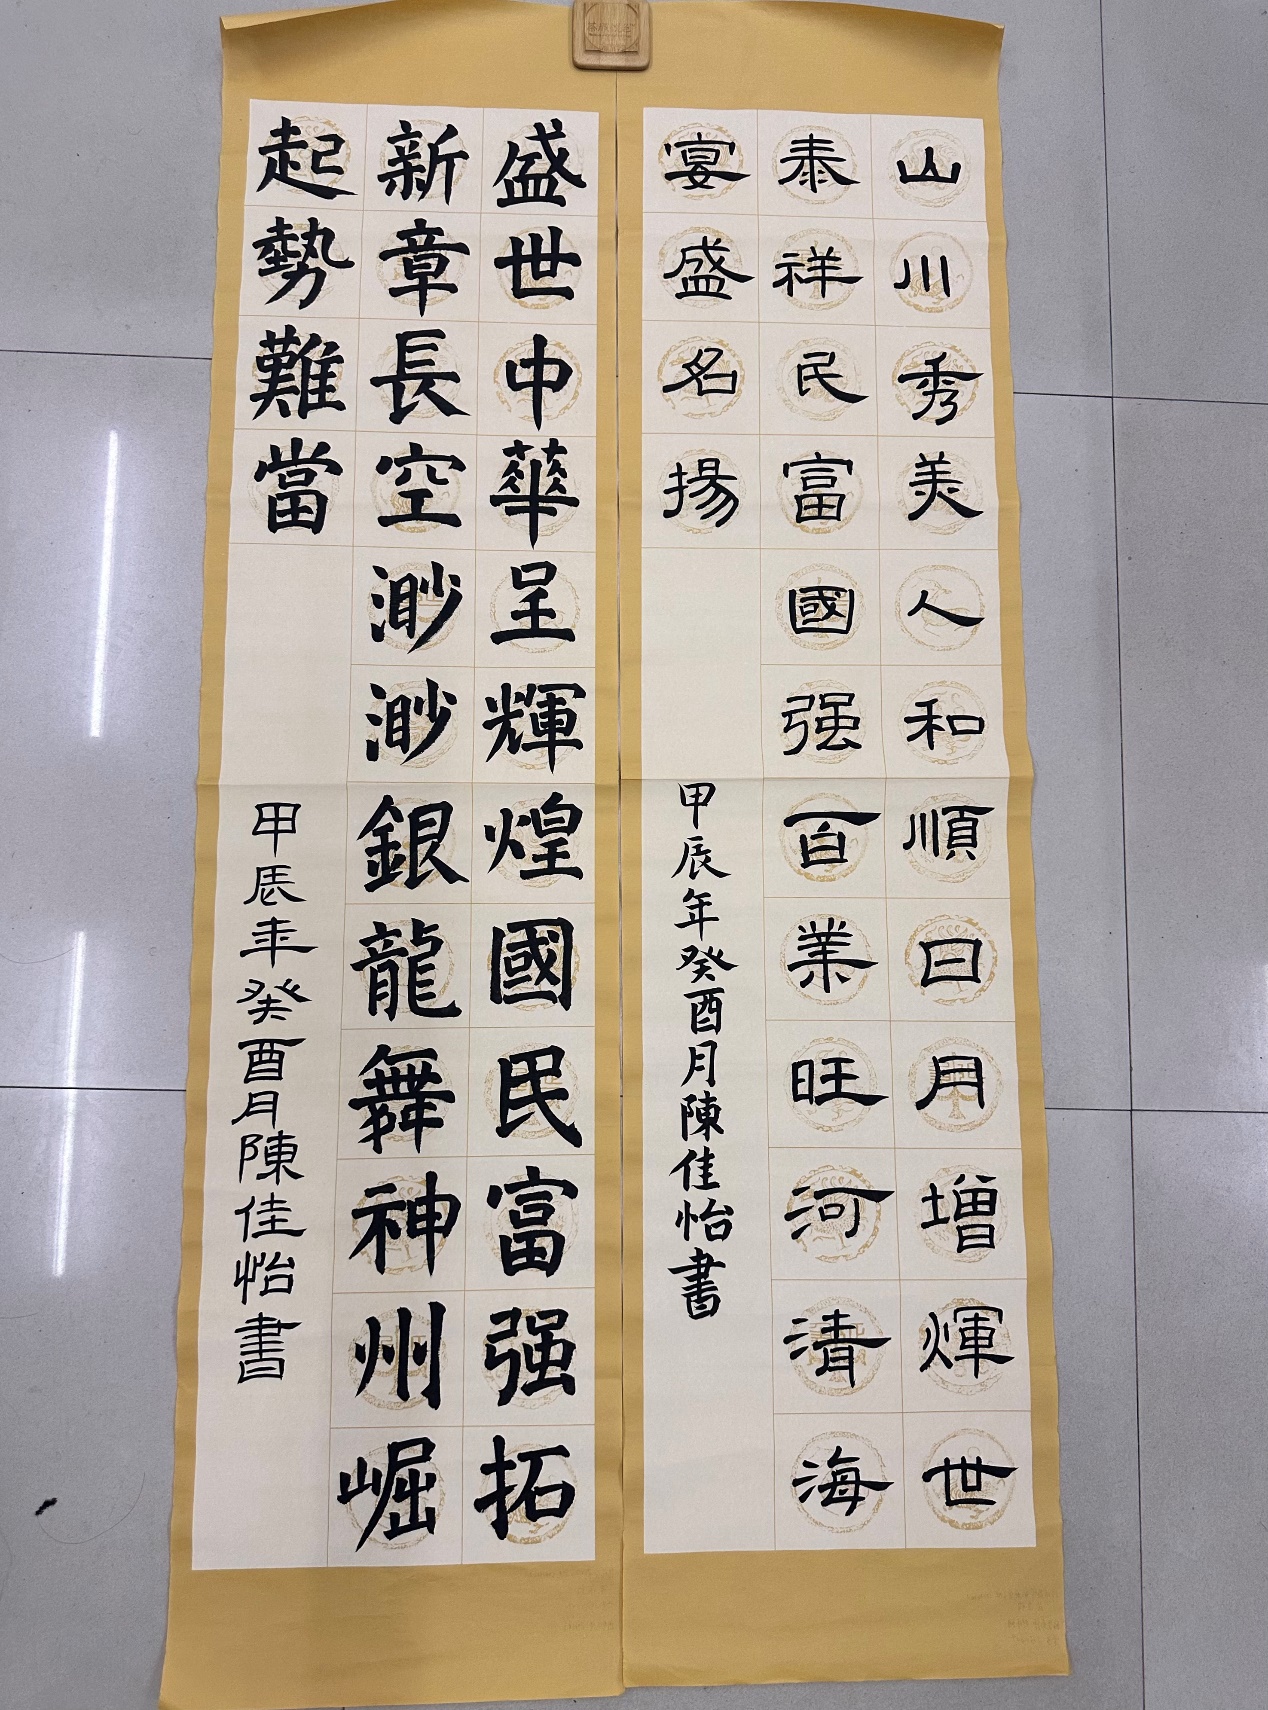 山川秀美人和順日月增煇世
泰祥民富國强百業旺河清海
宴盛名揚
甲辰年癸酉月陳佳怡書
盛世中華呈輝煌國民富强拓
新章長空渺渺銀龍舞神州崛
起勢難當
甲辰年癸酉月陳佳怡書